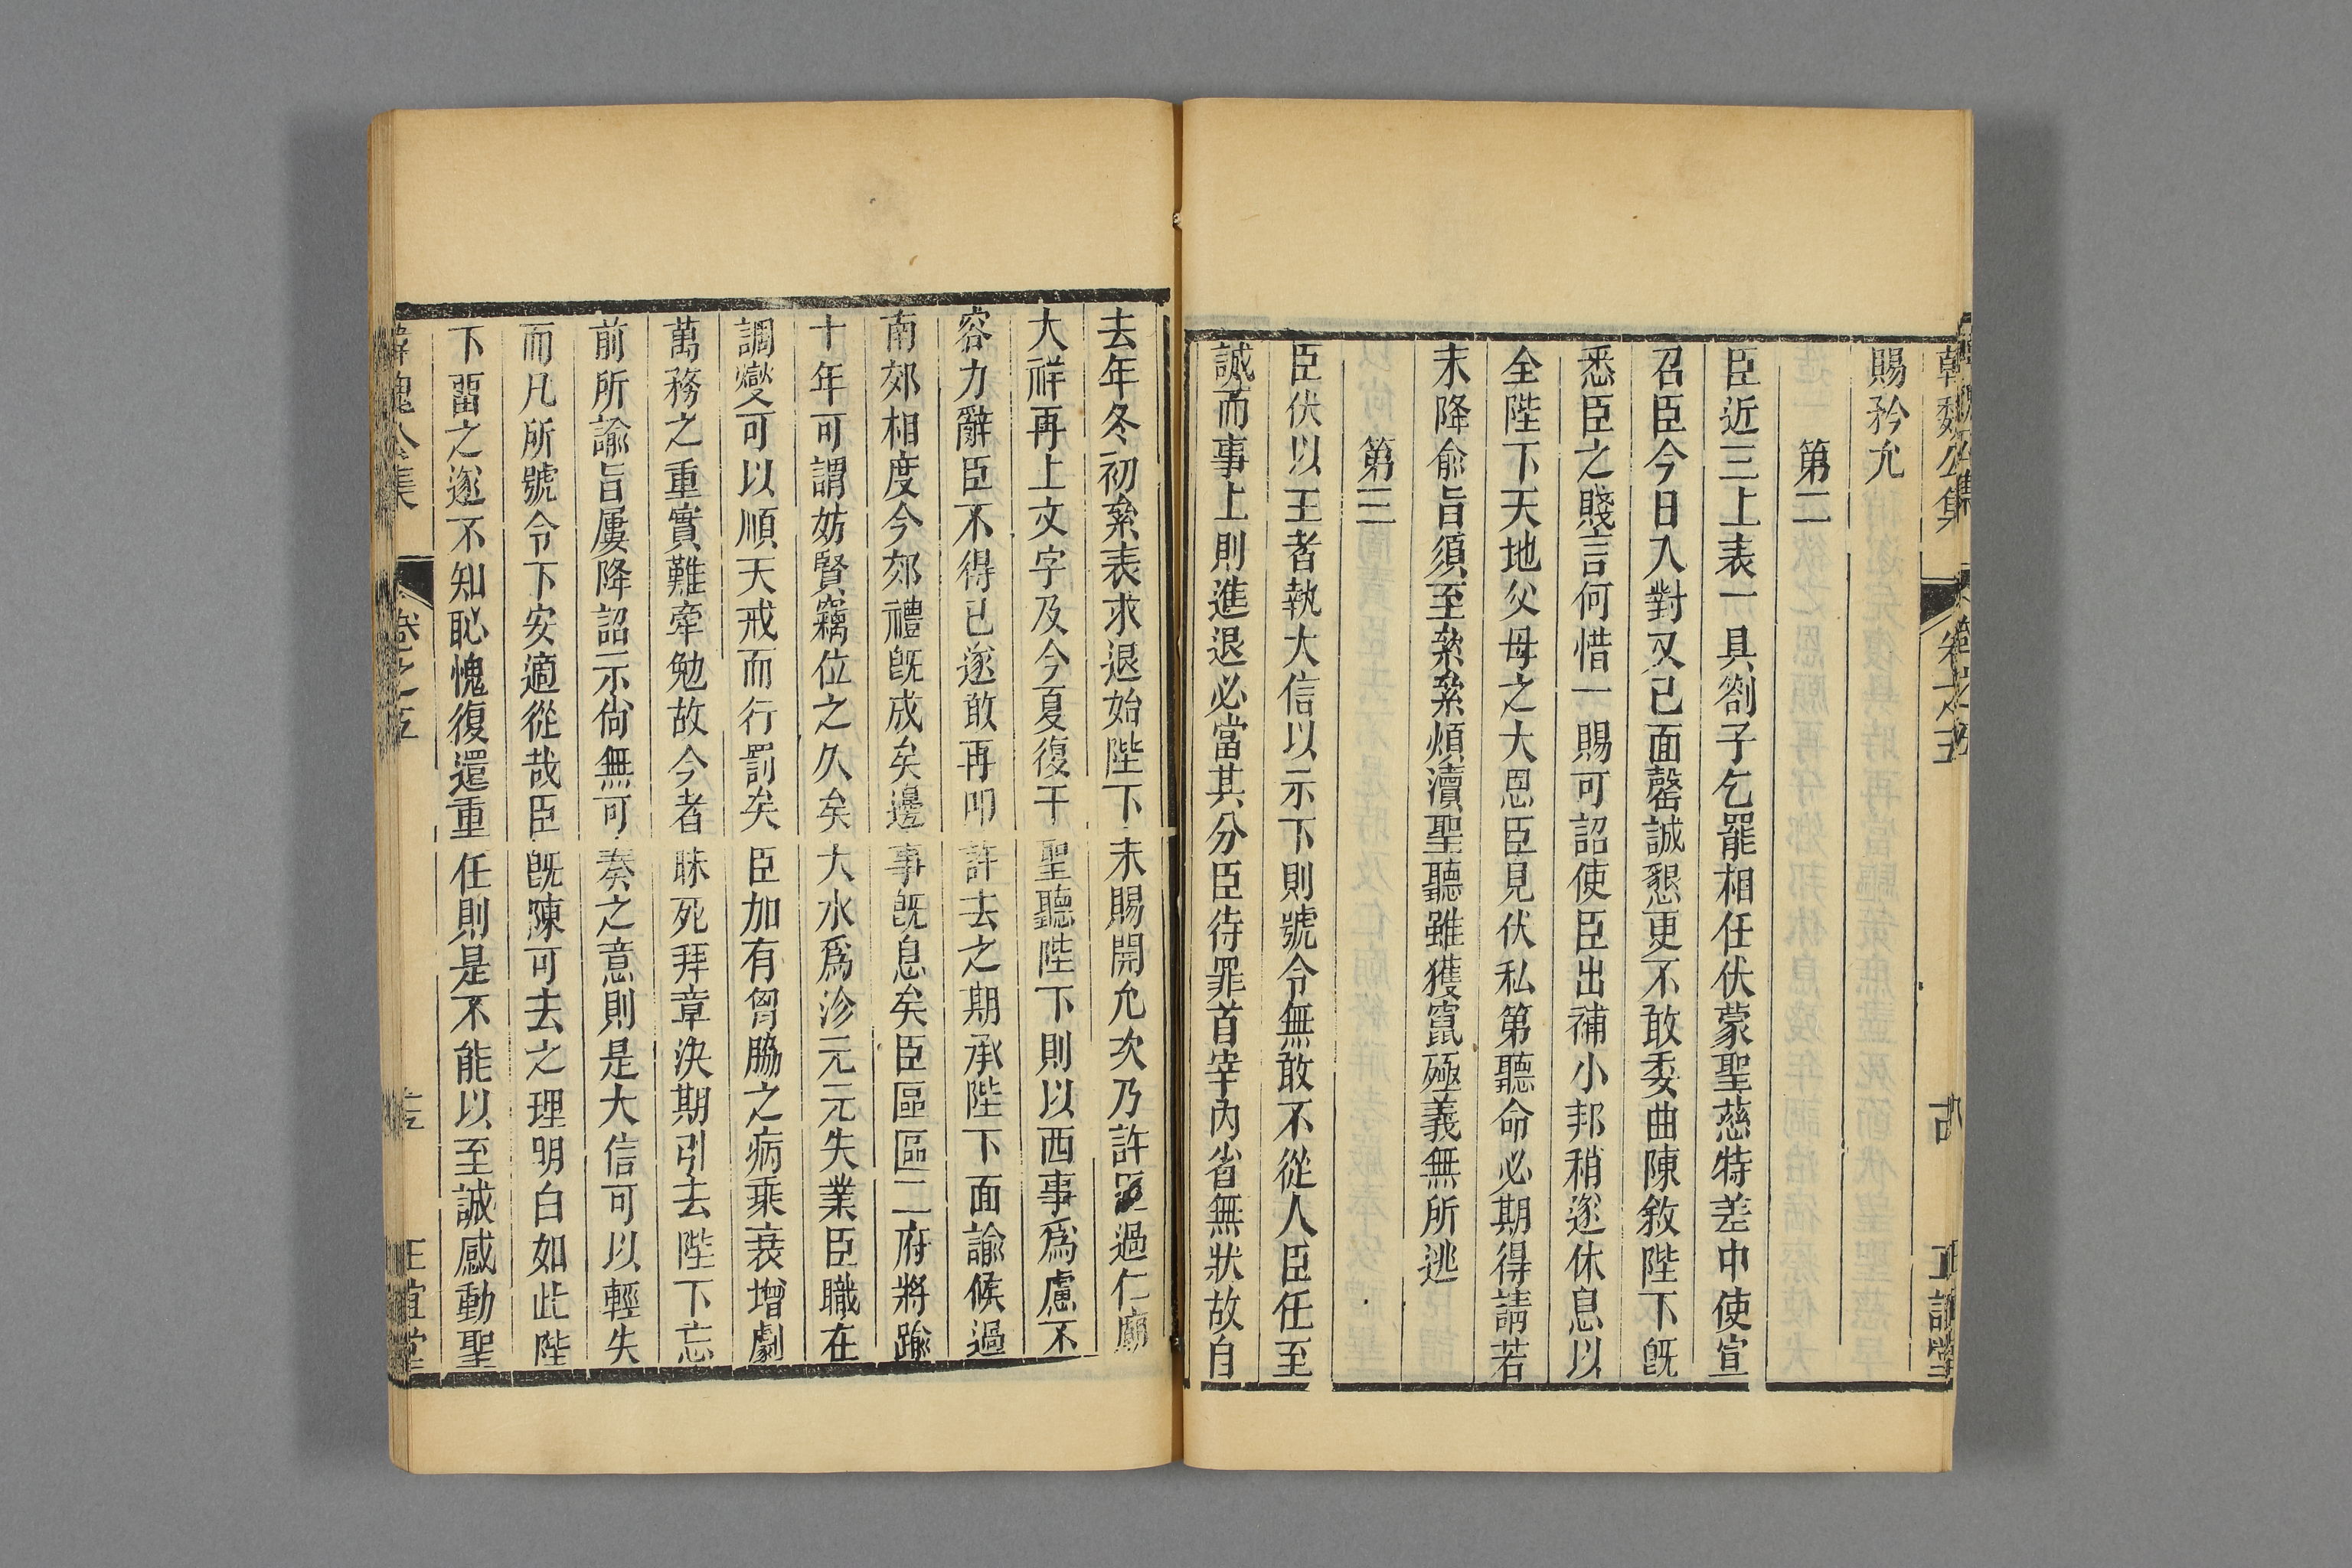 韓魏公集 卷之五 古 正誼堂
賜矜允
第二
臣近三上表一具劄子乞罷相任伏蒙聖慈特差中使宣
召臣今日入對又已面罄誠懇更不敢委曲陳敘陛下旣
悉臣之賤言何惜一賜可詔使臣出補小邦稍遂休息以
全陛下天地父母之大恩臣見伏私第聽命必期得請若
未降俞旨須至絫絫煩瀆聖聽雖獲竄殛義無所逃
第三
臣伏以王者執大信以示下則號令無敢不從人臣任至
誠而事上則進退必當其分臣待罪首宰內省無狀故自
去年冬初絫表求退始陛下未賜開允次乃許過仁廟
大祥再上文字及今夏復干聖聽陛下則以西事爲慮不
容力辭臣不得已遂敢再叩許去之期承陛下面諭候過
南郊相度今郊禮旣成矣邊事旣息矣臣區區二府將踰
十年可謂妨賢竊位之久矣大水爲沴元元失業臣職在
調燮可以順天戒而行罰矣臣加有胷脇之病乘衰增劇
萬務之重實難牽勉故今者昧死拜章決期引去陛下忘
前所諭旨屢降詔示尙無可奏之意則是大信可以輕失
而凡所號令下安適從哉臣旣陳可去之理明白如此陛
下畱之遂不知恥愧復還重任則是不能以至誠感動聖
韓魏公集 卷之五 正誼堂